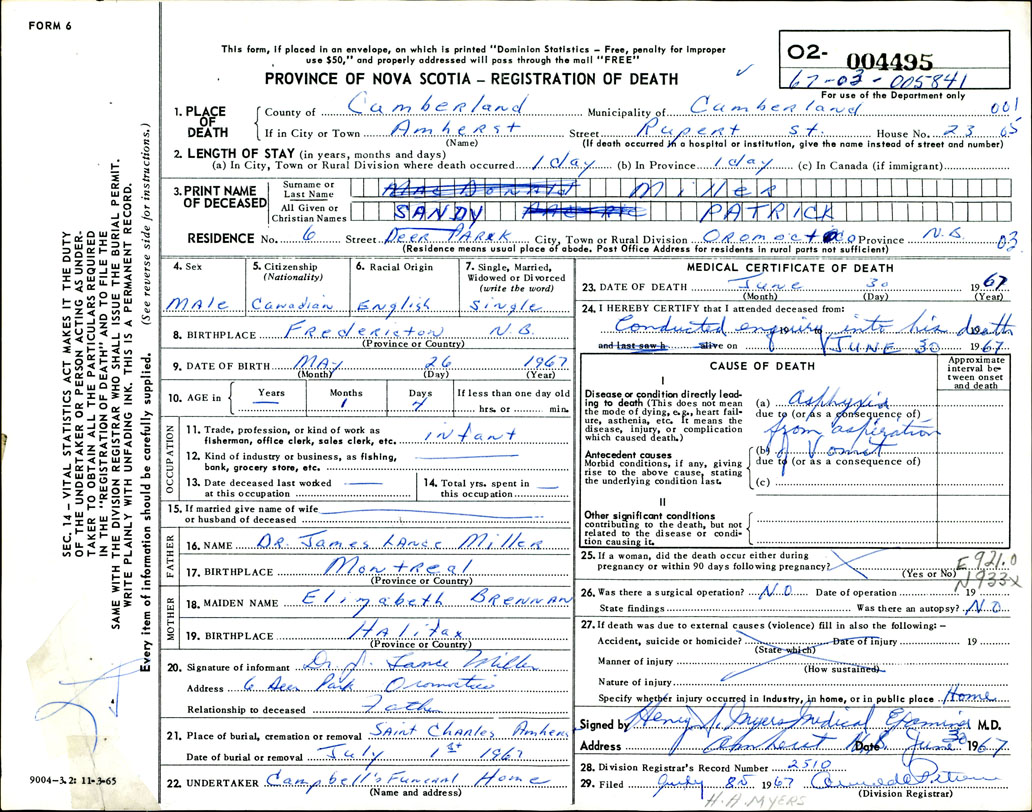 FORM 6
This form, if placed in an envelope, on which is printed "Dominion Statistics – Free, penalty for improper
use $50," and properly addressed will pass through the mail "FREE"
PROVINCE OF NOVA SCOTIA – REGISTRATION OF DEATH
02- 004495
67-03-005841
For use of the Department only
SEC. 14 – VITAL STATISTICS ACT MAKES IT THE DUTY
OF THE UNDERTAKER OR PERSON ACTING AS UNDER-
TAKER TO OBTAIN ALL THE PARTICULARS REQUIRED
IN THE "REGISTRATION OF DEATH" AND TO FILE THE
SAME WITH THE DIVISION REGISTRAR WHO SHALL ISSUE THE BURIAL PERMIT.
WRITE PLAINLY WITH UNFADING INK. THIS IS A PERMANENT RECORD.
Every item of information should be carefully supplied. (See reverse side for instructions.)
1. PLACE OF DEATH County of Cumberland Municipality of Cumberland 001
If in City or Town Amherst Street Rupert St. House No. 23 05
(Name) (If death occurred in a hospital or institution, give the name instead of street and number)
2. LENGTH OF STAY (in years, months and days)
(a) In City, Town or Rural Division where death occurred 1 day (b) In Province 1 day (c) In Canada (if immigrant)
3. PRINT NAME OF DECEASED Surname or Last Name Mac Donald Miller
All Given or Christian Names SANDY PATRICK
RESIDENCE No. 6 Street Deer Park City, Town or Rural Division Oromocto Province N.B. 03
(Residence means usual place of abode. Post Office Address for residents in rural parts not sufficient)
4. Sex Male
5. Citizenship (Nationality) Canadian
6. Racial Origin English
7. Single, Married, Widowed or Divorced (write the word) Single
8. BIRTHPLACE Fredericton N.B.
(Province or Country)
9. DATE OF BIRTH MAY 26 1967
(Month) (Day) (Year)
10. AGE in Years Months 1 Days 7 If less than one day old
hrs. or min.
OCCUPATION
11. Trade, profession, or kind of work as fisherman, office clerk, sales clerk, etc. infant
12. Kind of industry or business, as fishing, bank, grocery store, etc.
13. Date deceased last worked at this occupation 14. Total yrs. spent in this occupation
15. If married give name of wife or husband of deceased
FATHER
16. NAME Dr. James Lance Miller
17. BIRTHPLACE Montreal
(Province or Country)
MOTHER
18. MAIDEN NAME Elizabeth BRENNAN
19. BIRTHPLACE Halifax
(Province or Country)
20. Signature of informant Dr. J. Lance Miller
Address 6 Deer Park Oromocto
Relationship to deceased Father
21. Place of burial, cremation or removal Saint Charles Amherst
Date of burial or removal July 1st 1967
22. UNDERTAKER Campbell's Funeral Home
(Name and address)
9004–3.2: 11-3-65
MEDICAL CERTIFICATE OF DEATH
23. DATE OF DEATH June 30 1967
(Month) (Day) (Year)
24. I HEREBY CERTIFY that I attended deceased from:
Conducted enquiry into his death
19 19
and last saw h alive on JUNE 30 1967
CAUSE OF DEATH
Approximate interval between onset and death
I
Disease or condition directly leading to death (This does not mean the mode of dying, e.g., heart failure, asthenia, etc. It means the disease, injury, or complication which caused death.)
(a) Asphyxia
due to (or as a consequence of)
from aspiration
Antecedent causes
Morbid conditions, if any, giving rise to the above cause, stating the underlying condition last.
(b) of Vomit
due to (or as a consequence of)
(c)
II
Other significant conditions
contributing to the death, but not related to the disease or condition causing it.
25. If a woman, did the death occur either during pregnancy or within 90 days following pregnancy?
(Yes or No)
E 921.0
N933x
26. Was there a surgical operation? No Date of operation 19
State findings Was there an autopsy? No
27. If death was due to external causes (violence) fill in also the following: –
Accident, suicide or homicide? Date of Injury 19
(State which)
Manner of injury
(How sustained)
Nature of injury
Specify whether injury occurred in Industry, in home, or in public place Home
Signed by Henry J. Myers Medical Examiner M.D.
Address Amherst N.S. Date June 30 1967
28. Division Registrar's Record Number 2510
29. Filed July 1967
(Division Registrar)
H.H. MYERS